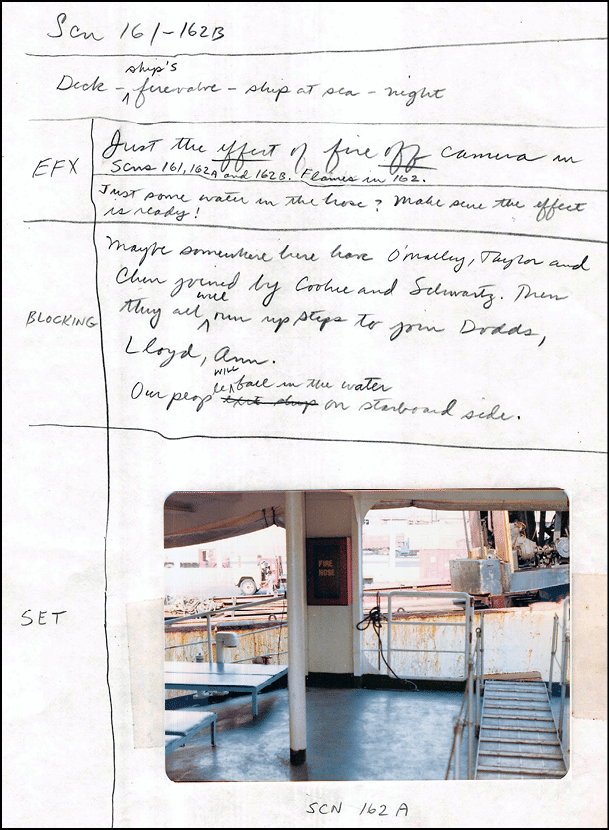 Scn 161-162B
ship's
Deck - ^ firevalve - ship at sea - night
EFX
Just the effect of fire off camera in
Scns 161, 162A and 162B. Flames in 162.
Just some water in the hose? Make sure the effect
is ready!
BLOCKING
Maybe somewhere here have O'Malley, Taylor and
Chen joined by Cookie and Schwartz. Then
will
they all ^ run up steps to join Dodds,
Lloyd, Ann.
will
Our peop le ^ bail in the water
exit ship on starboard side.
SET
FIRE
HOSE
SCN 162A